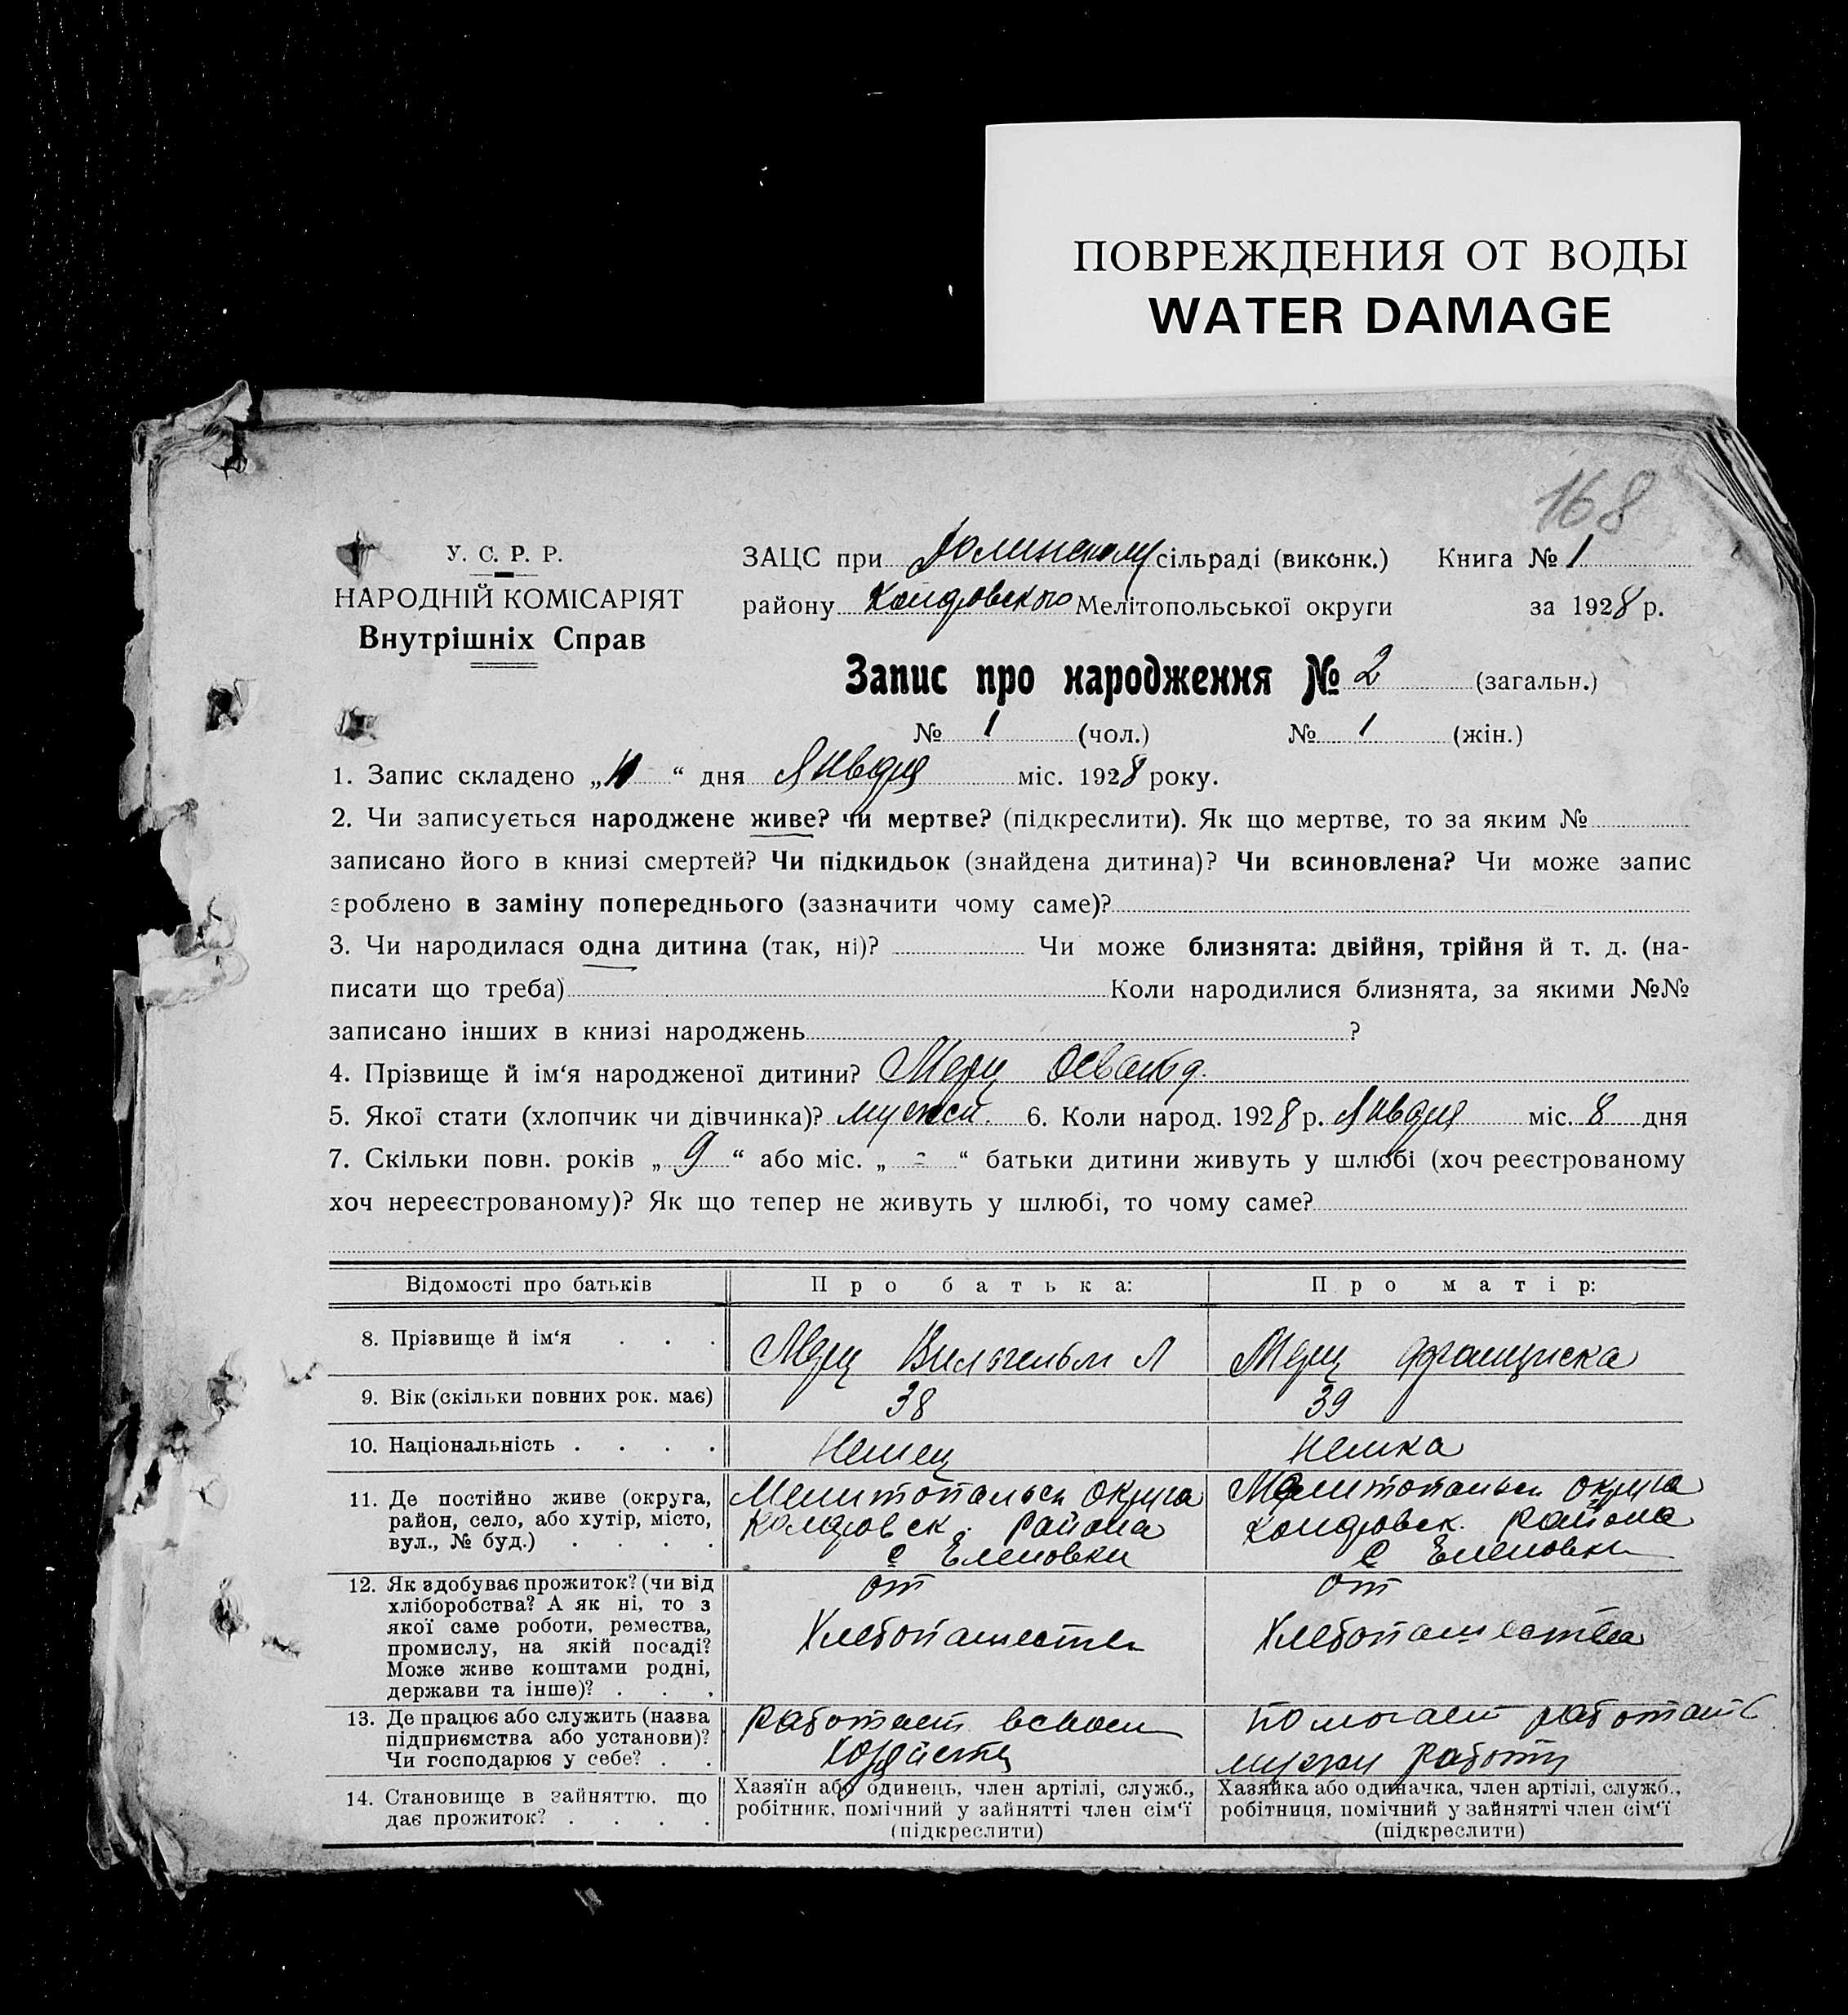 ПОВРЕЖДЕНИЯ ОТ ВОДЫ
WATER DAMAGE
168
У. С. Р. Р.
НАРОДНІЙ КОМІСАРІЯТ
Внутрішніх Справ
ЗАЦС при Долинскому сільраді (виконк.) Книга № 1
району Мелітопольської округи за 1928 р.
Запис про народження № 2 (загальн.)
№ 1 (чол.) № 1 (жін.)
1. Запис складено „ “ дня Января міс. 1928 року.
2. Чи записується народжене живе? чи мертве? (підкреслити). Як що мертве, то за яким №
записано його в книзі смертей? Чи підкидьок (знайдена дитина)? Чи всиновлена? Чи може запис
зроблено в заміну попереднього (зазначити чому саме)?
3. Чи народилася одна дитина (так, ні)? Чи може близнята: двійня, трійня й т. д. (на-
писати що треба) Коли народилися близнята, за якими №№
записано інших в книзі народжень ?
4. Прізвище й ім‘я народженої дитини? Мерц Освальд.
5. Якої стати (хлопчик чи дівчинка)? мужск. 6. Коли народ. 1928 р. Января міс. 8 дня
7. Скільки повн. років „ 9 “ або міс. „ - “ батьки дитини живуть у шлюбі (хоч реєстрованому
хоч нереєстрованому)? Як що тепер не живуть у шлюбі, то чому саме?
Відомості про батьків
Про батька:
Про матір:
8. Прізвище й ім‘я . . .
Мерц Вильгельм Л
Мерц Франциска
9. Вік (скільки повних рок. має)
38
39
10. Національність . . . .
Немец
Немка
11. Де постійно живе (округа,
район, село, або хутір, місто,
вул., № буд.) . . . .
Мелитопольск округа
района
с Еленовки
Мелитопольск округа
района
с Еленовки
12. Як здобуває прожиток? (чи від
хліборобства? А як ні, то з
якої саме роботи, ремества,
промислу, на якій посаді?
Може живе коштами родні,
держави та інше)? . . .
от
Хлебопашества
от
Хлебопашества
13. Де працює або служить (назва
підприємства або установи)?
Чи господарює у себе? . .
Работает в своем
Помогает работать
мужу работу
14. Становище в зайняттю, що
дає прожиток? . . . .
Хазяїн або одинець, член артілі, служб.,
робітник, помічний у зайнятті член сім‘ї
(підкреслити)
Хазяйка або одиначка, член артілі, служб.,
робітниця, помічний у зайнятті член сім‘ї
(підкреслити)